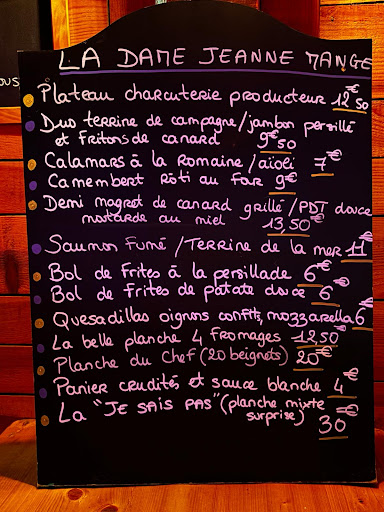 OUS
LA DAME JEANNE MANGE
Plateau charcuterie producteur 12€50
Duo terrine de campagne/jambon persillé
et Fritons de canard 9€50
Calamars à la Romaine/aïoli 7€
Camembert Rôti au Four 9€
Demi magret de canard grillé/PDT douce
moutarde au miel 13,50€
Saumon Fumé/Terrine de la mer 11€
Bol de Frites à la persillade 6€
Bol de Frites de patate douce 6€
Quesadillas oignons confits, mozzarella 6€
La belle planche 4 Fromages 12€50
Planche du Chef (20 beignets) 20€
Panier crudités et sauce blanche 4€
La "JE SAIS PAS" (planche mixte
surprise) 30€